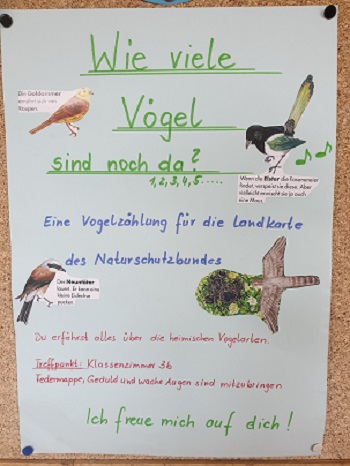 Wie viele
Vögel
sind noch da?
1, 2, 3, 4, 5.....
Die Goldammer
ernährt sich von
Raupen.
Wenn die Elster
eine Maus.
Eine Vogelzählung für die Landkarte
des Naturschutzbundes
Der Neuntöter
Du erfährst alles über die heimischen Vogelarten.
Treffpunkt: Klassenzimmer 3b
Federmappe, Geduld und wache Augen sind mitzubringen
Ich freue mich auf dich!